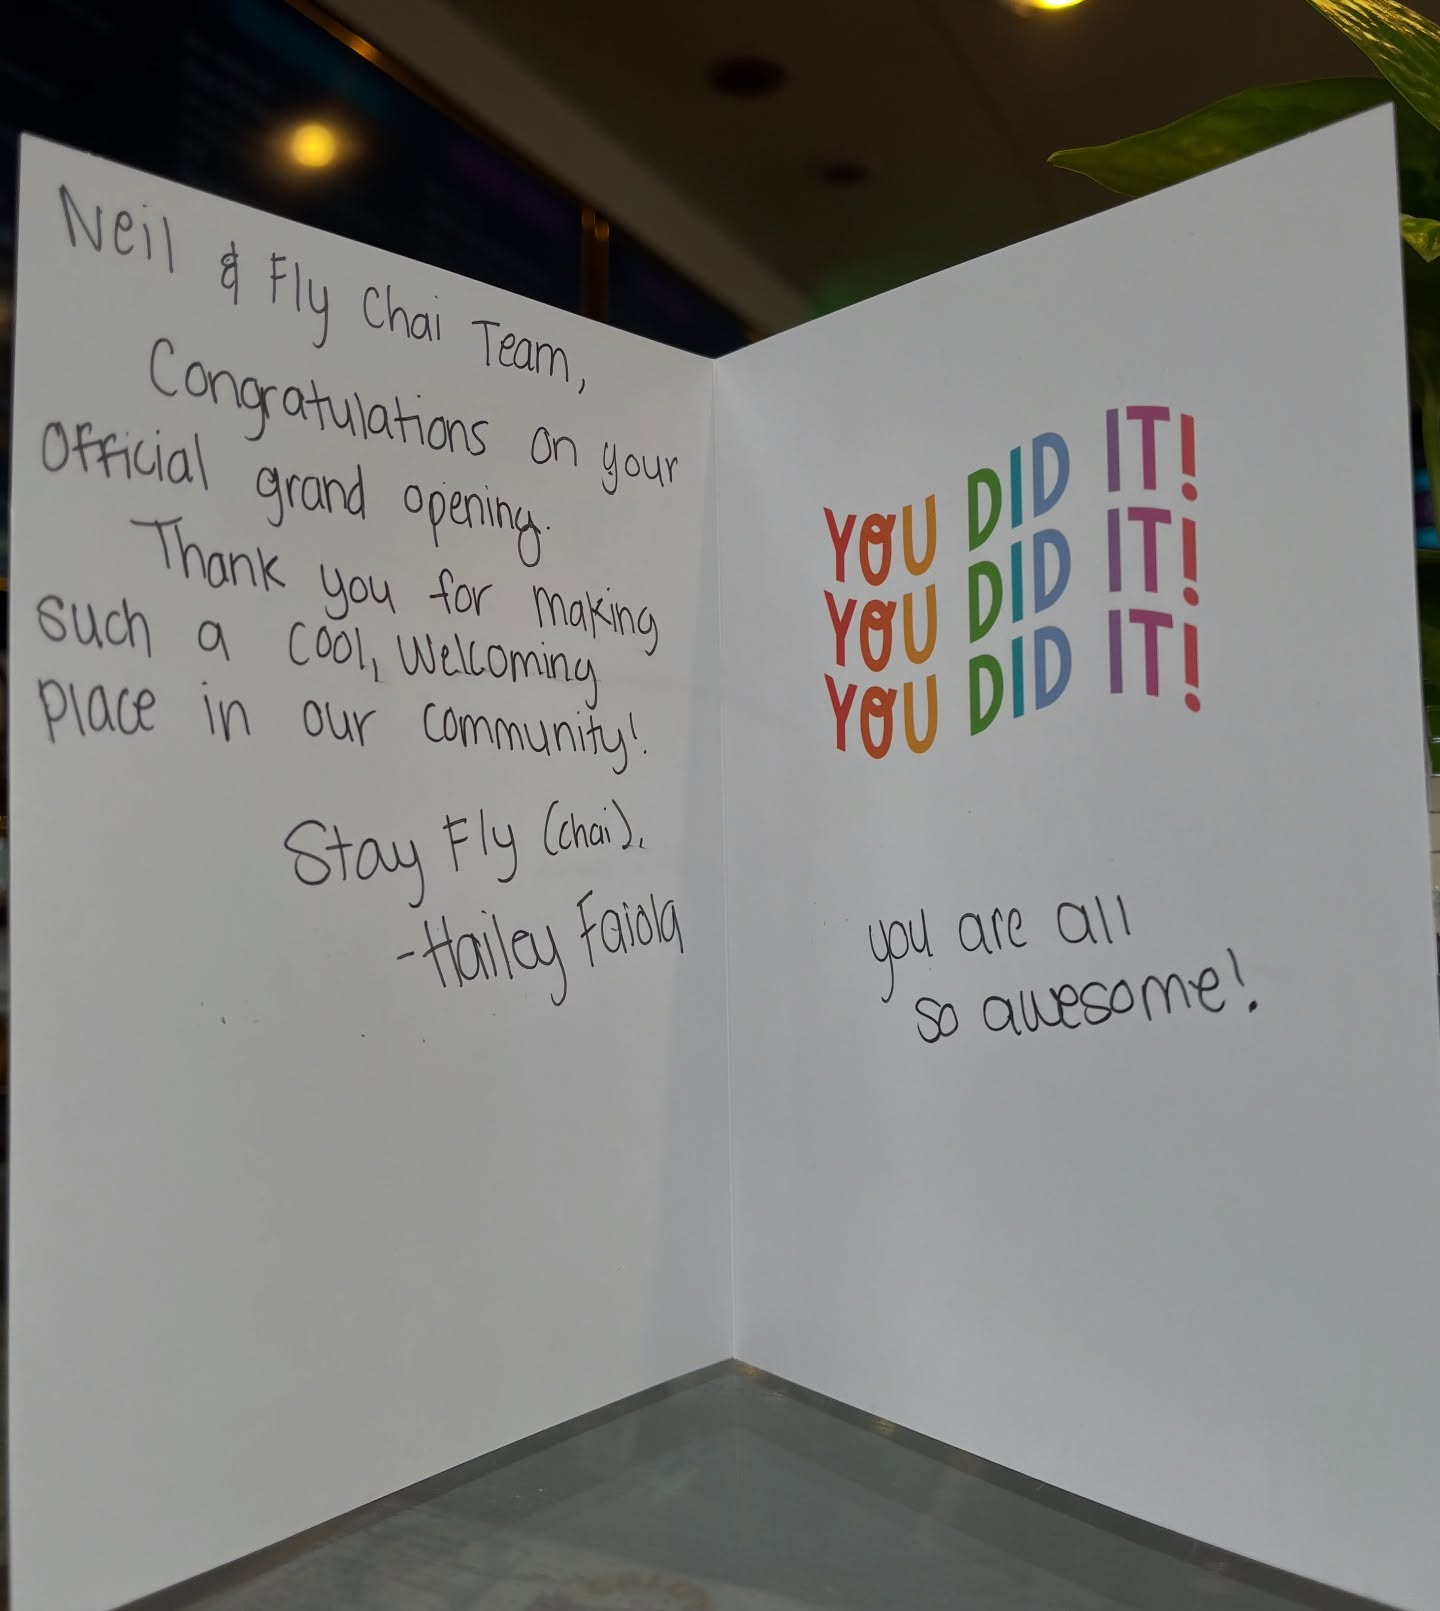 Neil & Fly Chai Team,
Congratulations on your
Official grand opening.
Thank you for making
such a cool, welcoming
place in our community!
Stay Fly (chai).
-Hailey Faiola
YOU DID IT!
YOU DID IT!
YOU DID IT!
you are all
so awesome!